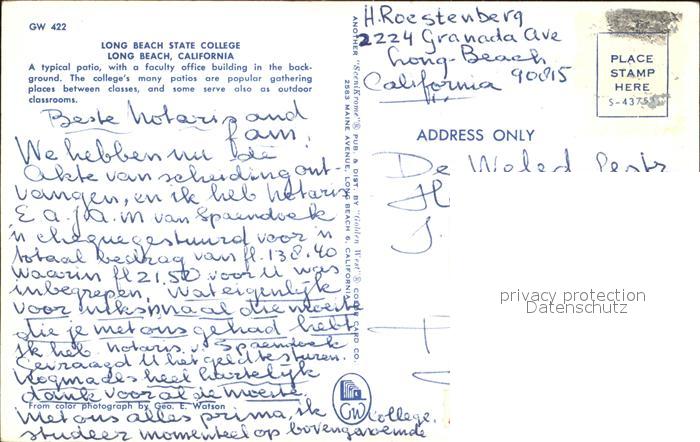 GW 422
LONG BEACH STATE COLLEGE
LONG BEACH, CALIFORNIA
A typical patio, with a faculty office building in the back-
ground. The college's many patios are popular gathering
places between classes, and some serve also as outdoor
classrooms.
Beste Notaris and
fam.
We hebben nu de
akte van scheiding ont-
vangen, en ik heb notaris
E a. J. A. M van Spaendock
'n cheque gestuurd voor 'n
totaal bedrag van fl. 138.40
waarin fl 21.50 voor U was
inbegrepen, wat eigenlijk
voor niks maal die moeite
die je met ons gehad hebt
ik heb notaris v. Spaendock
gevraagd U het geld te sturen.
Nogmaals heel hartelijk
dank voor al de moeite.
From color photograph by Geo. E. Watson
Met ons alles prima, ik
studeer momenteel op bovengenoemde
College.
ANOTHER "SceniKrome"® PUB. & DIST. BY "Golden West"® COLOR CARD CO.
2583 MAINE AVENUE, LONG BEACH 6, CALIFORNIA
GW
H. Roestenberg
2224 Granada Ave
Long-Beach
California 90815
PLACE
STAMP
HERE
ADDRESS ONLY
De Weled
privacy protection
Datenschutz